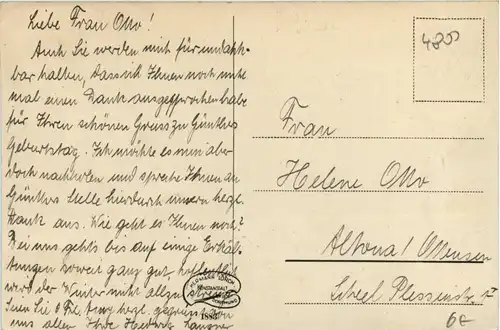 Liebe Frau Otto!
Auch Sie werden mich für undank-
bar halten, dass ich Ihnen noch nicht
mal einen Dank ausgesprochen habe
für Ihren schönen Gruss zu Günthers
Geburtstag. Ich möchte es nun aber
doch nachholen und spreche Ihnen an
Günthers Stelle hierdurch unsern herzl.
Dank aus. Wie geht es Ihnen noch?
Bei uns gehts bis auf einige Erkäl-
tungen soweit ganz gut hoffentlich
wird der Winter nicht allzu
Seien Sie herzl. gegrüsst von
uns allen Ihre Hedwig
4800
Frau
Helene Otto
Altona/Ottensen
Scheel Plessenstr.
6€